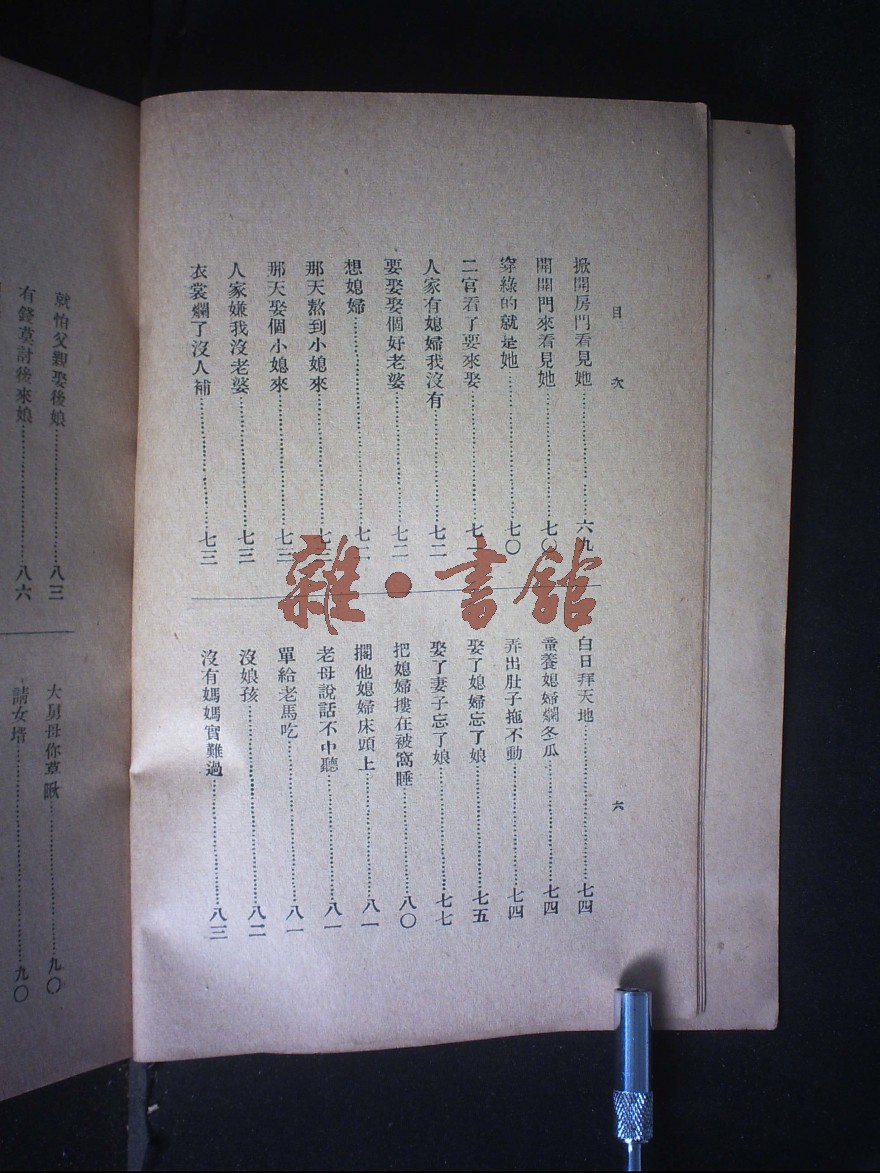 目次
六
掀開房門看見她……六九
開開門來看見她……七〇
穿綠的就是她……七〇
二官看了要來娶……七二
人家有媳婦我沒有……七二
要娶娶個好老婆……七二
想媳婦……七二
那天熬到小媳來……七三
那天娶個小媳來……七三
人家嫌我沒老婆……七三
衣裳爛了沒人補……七三
白日拜天地……七四
童養媳婦爛冬瓜……七四
弄出肚子拖不動……七四
娶了媳婦忘了娘……七五
娶了妻子忘了娘……七七
把媳婦摟在被窩睡……八〇
擱他媳婦床頭上……八一
老母說話不中聽……八一
單給老馬吃……八一
沒娘孩……八二
沒有媽媽實難過……八三
就怕父親娶後娘……八三
有錢莫討後來娘……八六
大舅母你莫瞅……九〇
請女壻……九〇
雜·書館